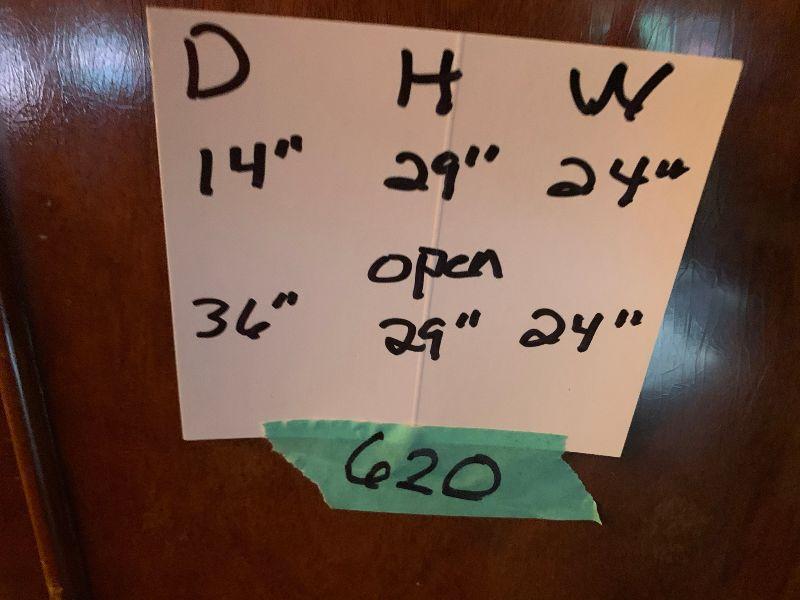 D H W
14" 29" 24"
open
36" 29" 24"
620